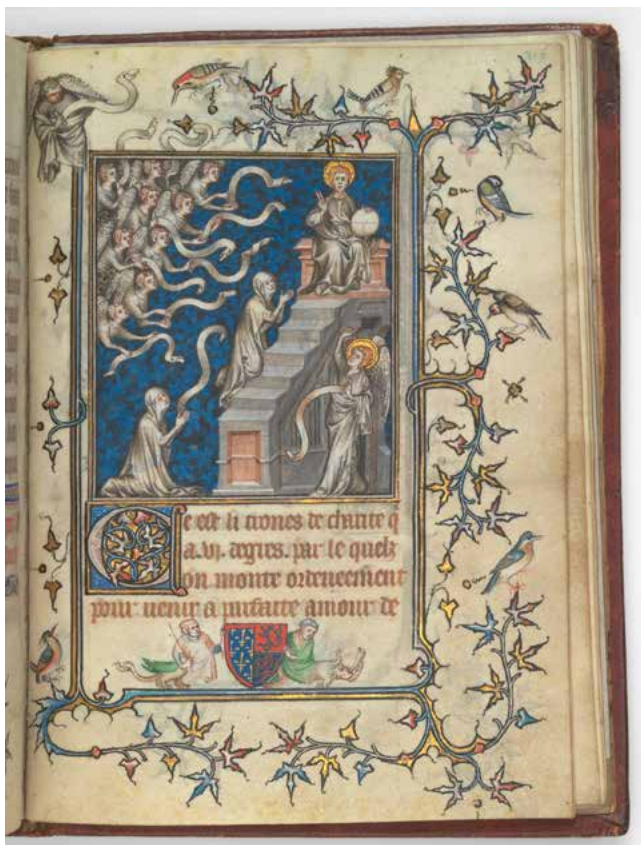 Ce est li trones de charite q̄
a .vj. degres. par le quelz
on monte ordeneement
pour uenir a parfaite amour de